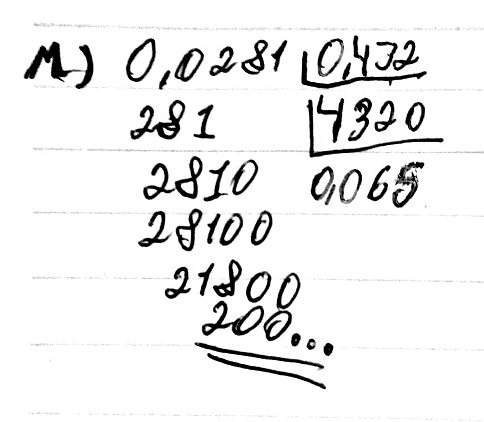 M) 0,0281 0,432
281 4320
2810 0,065
28100
21800
200...